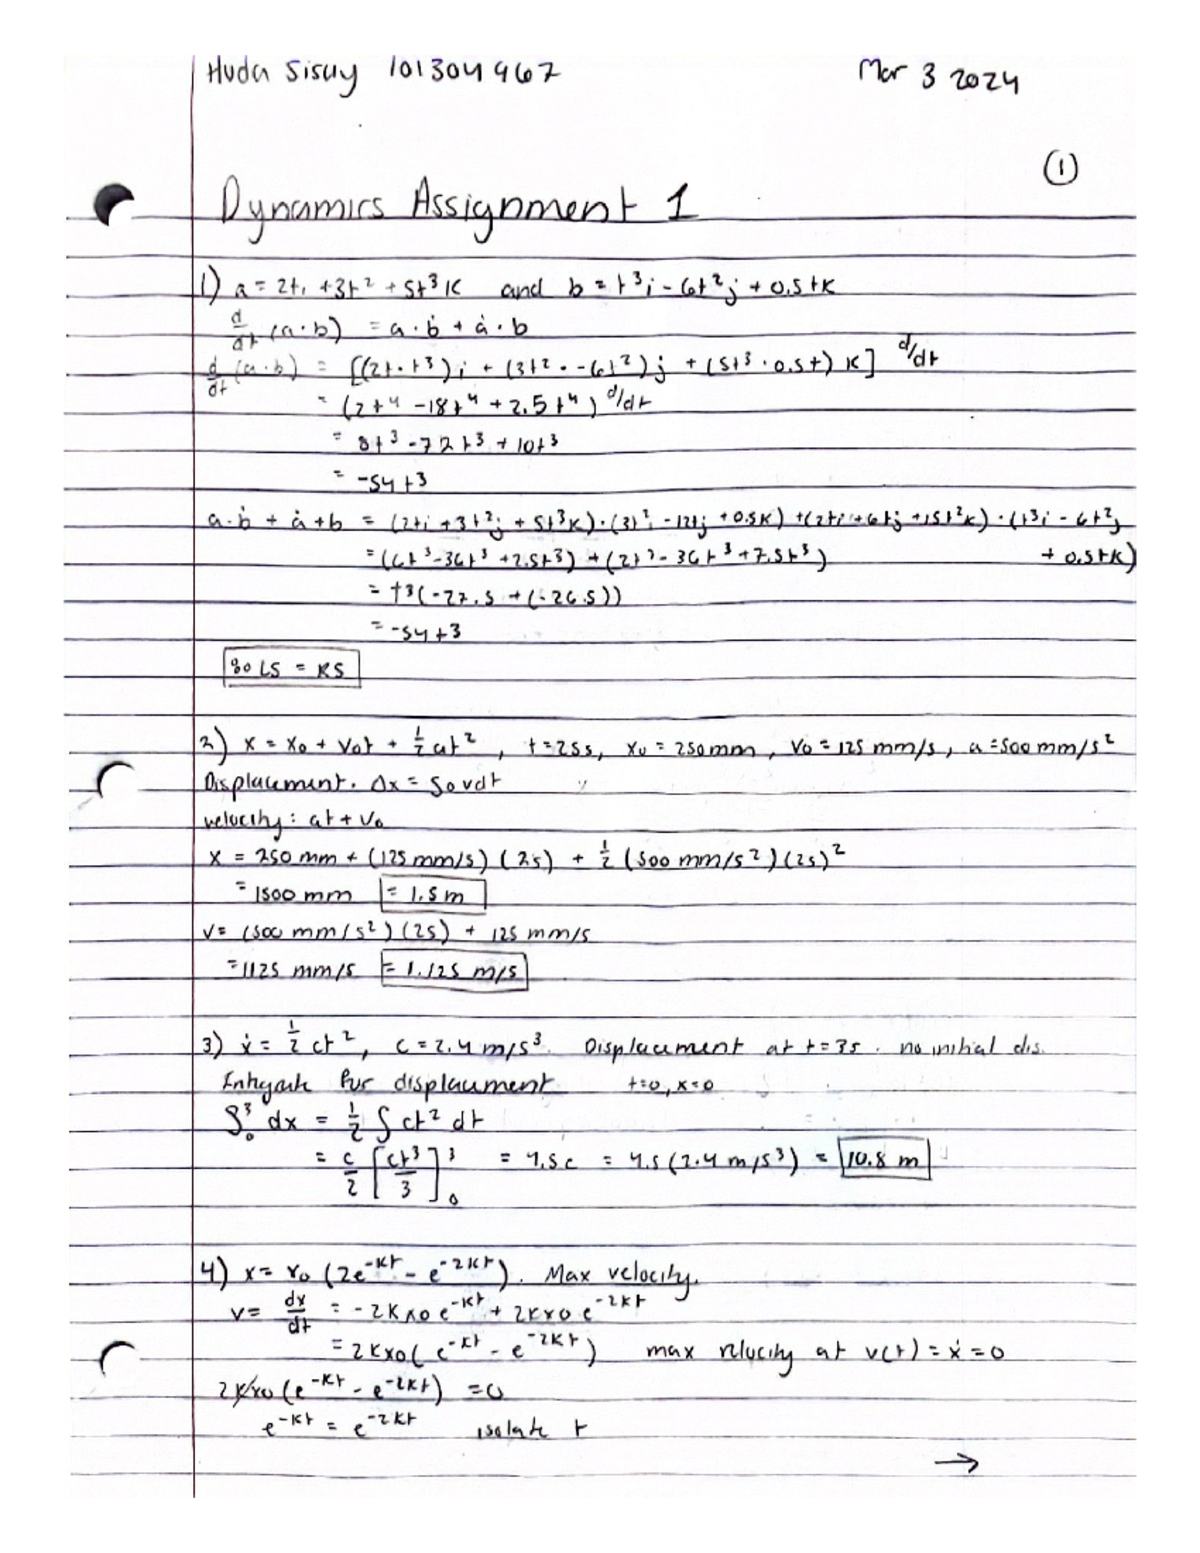 Huda Sisay 101304967 Mar 3 2024
①
Dynamics Assignment 1
1) a = 2ti + 3t² + 5t³ k and b = t³i - 6t²j + 0.5tk
d/dt (a·b) = a·ḃ + ȧ·b
d/dt (a·b) = [(2t·t³)i + (3t²·-6t²)j + (5t³·0.5t)k] d/dt
= (2t⁴ - 18t⁴ + 2.5t⁴) d/dt
= 8t³ - 72t³ + 10t³
= -54t³
a·ḃ + ȧ+b = (2ti + 3t²j + 5t³k)·(3t²i - 12tj + 0.5k) + (2ti + 6tj + 15t²k)·(t³i - 6t²j
+ 0.5tk)
= (6t³ - 36t³ + 2.5t³) + (2t³ - 36t³ + 7.5t³)
= t³(-27.5 + (-26.5))
= -54t³
so LS = RS
2) x = x₀ + v₀t + ½at², t=2s, x₀ = 250mm, v₀ = 125 mm/s, a = 500 mm/s²
Displacement. Δx = ∫₀vdt
velocity: at + v₀
x = 250 mm + (125 mm/s)(2s) + ½(500 mm/s²)(2s)²
= 1500 mm = 1.5 m
v = (500 mm/s²)(2s) + 125 mm/s
= 1125 mm/s = 1.125 m/s
3) ẋ = ½ct², c = 2.4 m/s³. Displacement at t=3s. no initial dis.
Integrate for displacement t=0, x=0
∫₀³ dx = ½ ∫ ct² dt
= c/2 [ct³/3]₀³ = 4.5c = 4.5(2.4 m/s³) = 10.8 m
4) x = x₀(2e^-kt - e^-2kt). Max velocity.
v = dx/dt = -2kx₀e^-kt + 2kx₀e^-2kt
= 2kx₀(e^-kt - e^-2kt) max velocity at v(t) = ẋ = 0
2kx₀(e^-kt - e^-2kt) = 0
e^-kt = e^-2kt isolate t
→